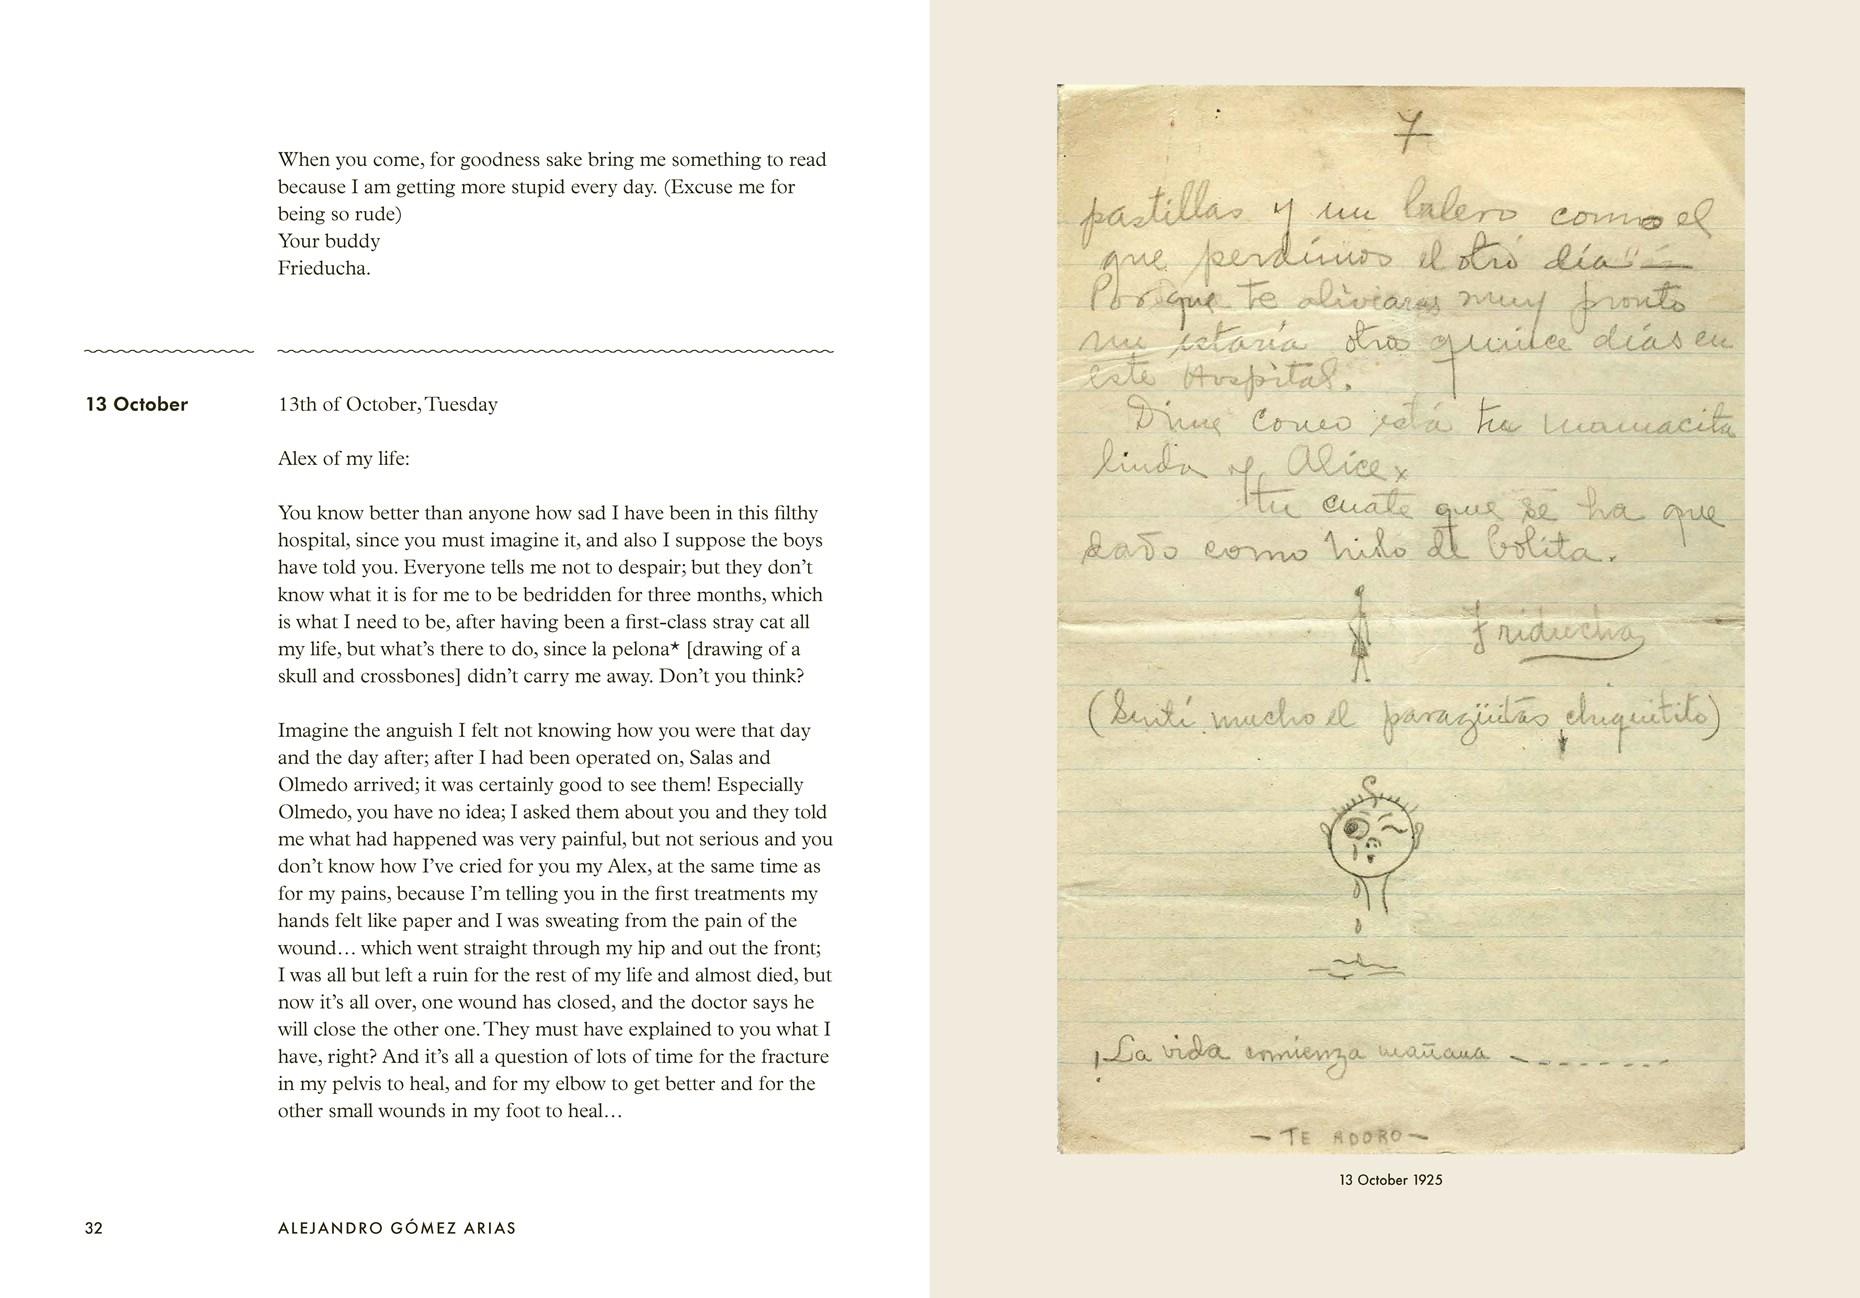 When you come, for goodness sake bring me something to read
because I am getting more stupid every day. (Excuse me for
being so rude)
Your buddy
Frieducha.
13 October
13th of October, Tuesday
Alex of my life:
You know better than anyone how sad I have been in this filthy
hospital, since you must imagine it, and also I suppose the boys
have told you. Everyone tells me not to despair; but they don’t
know what it is for me to be bedridden for three months, which
is what I need to be, after having been a first-class stray cat all
my life, but what’s there to do, since la pelona* [drawing of a
skull and crossbones] didn’t carry me away. Don’t you think?
Imagine the anguish I felt not knowing how you were that day
and the day after; after I had been operated on, Salas and
Olmedo arrived; it was certainly good to see them! Especially
Olmedo, you have no idea; I asked them about you and they told
me what had happened was very painful, but not serious and you
don’t know how I’ve cried for you my Alex, at the same time as
for my pains, because I’m telling you in the first treatments my
hands felt like paper and I was sweating from the pain of the
wound… which went straight through my hip and out the front;
I was all but left a ruin for the rest of my life and almost died, but
now it’s all over, one wound has closed, and the doctor says he
will close the other one. They must have explained to you what I
have, right? And it’s all a question of lots of time for the fracture
in my pelvis to heal, and for my elbow to get better and for the
other small wounds in my foot to heal…
32
ALEJANDRO GÓMEZ ARIAS
7
pastillas y un balero como el
que perdimos el otro día
Porque te aliviaras muy pronto
estaría otros quince días en
este Hospital.
Dime como está tu mamacita
linda y Alice
tu cuate que se ha que
dado como hilo de bolita.
Friducha
(Sentí mucho el paragüitas chiquitito)
¡La vida comienza mañana - - - - - - -
— TE ADORO —
13 October 1925